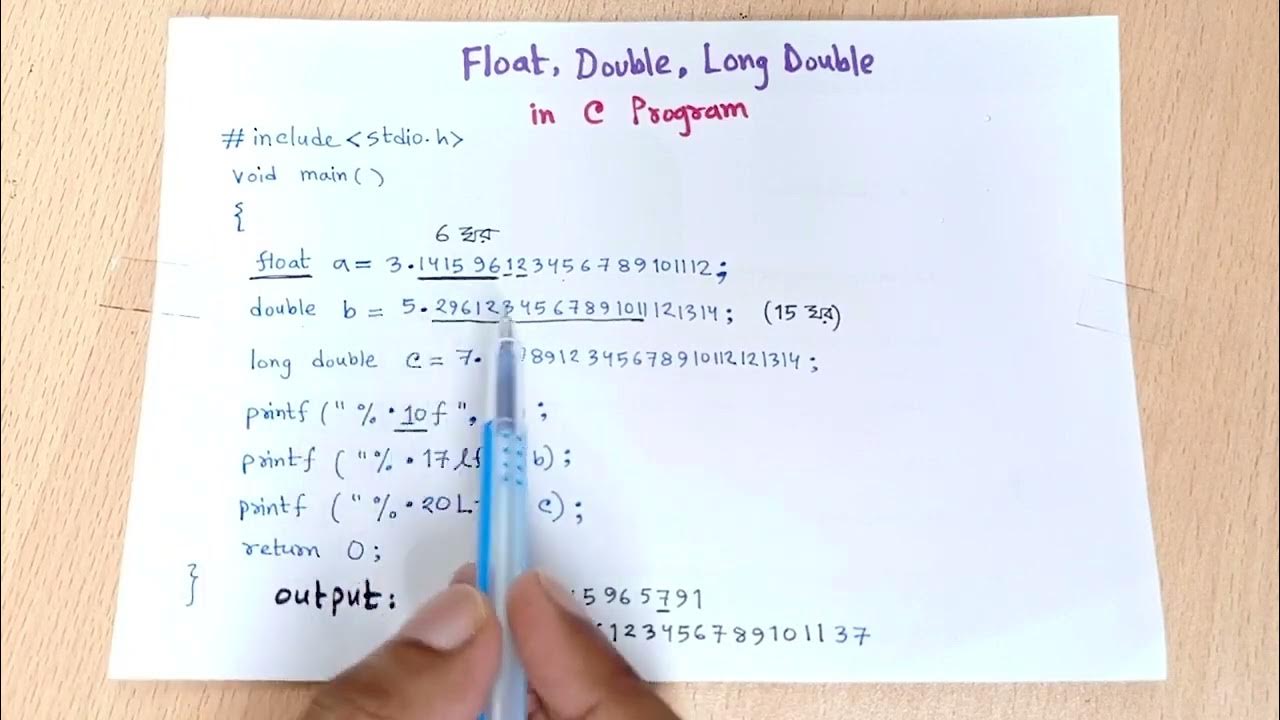 Float, Double, Long Double
in C Program
#include <stdio.h>
void main()
{
6 ঘর
float a = 3.1415961234567891011 12;
double b = 5.2961234567891011121314; (15 ঘর)
long double c = 7. 78912345678910112121314;
printf (" %.10f ", ;
printf ( "%.17lf b);
printf ( "%.20L c);
return 0;
}
output:
5965791
123456789101137